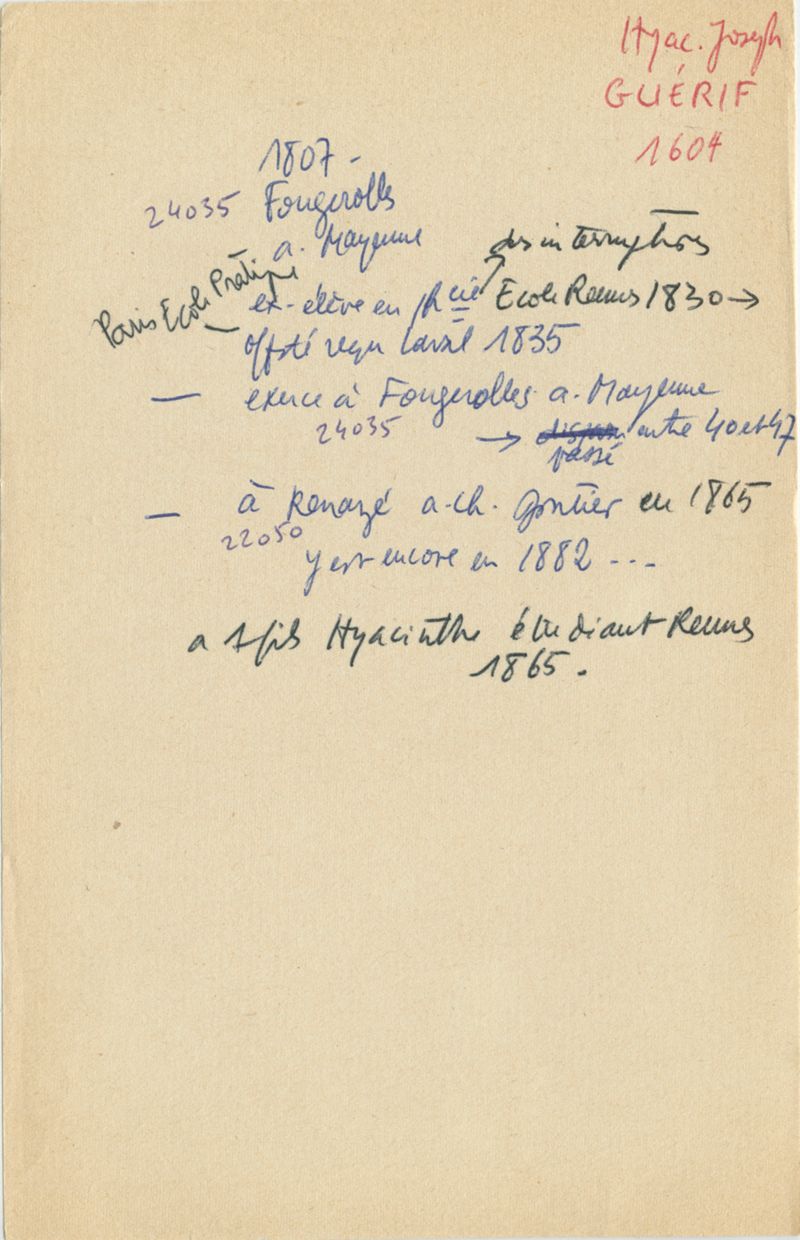 Hyac. Joseph
GUÉRIF
1604
1807 -
24035 Fougerolles
a. Mayenne
des interruptions
Paris Ecole Pratique
ex-élève en phcie Ecole Rennes 1830 →
offsté reçu Laval 1835
— exerce à Fougerolles a. Mayenne
24035
→ disparu entre 40 et 47
passé
— à Renazé a. ch. Gontier en 1865
22050
y est encore en 1882 ---
a 1 fils Hyacinthe étudiant Rennes
1865.